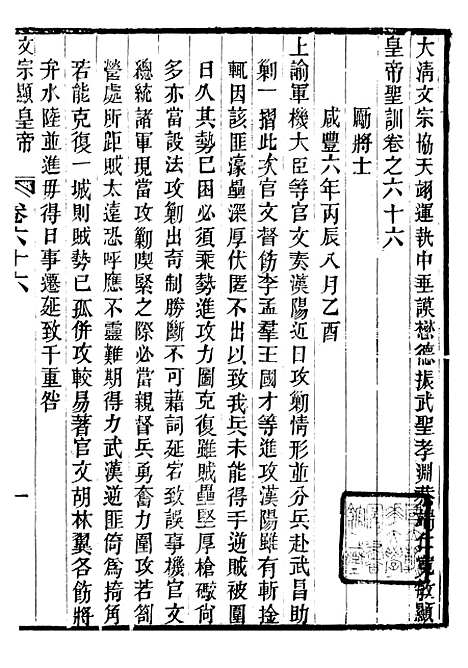 大清文宗協天翊運執中垂謨懋德振武聖孝淵恭端仁寬敏顯
皇帝聖訓卷之六十六
勵將士
咸豐六年丙辰八月乙酉
上諭軍機大臣等官文奏漢陽近日攻勦情形並分兵赴武昌助
勦一摺此次官文督飭李孟羣王國才等進攻漢陽雖有斬捦
輒因該匪濠壘深厚伏匿不出以致我兵未能得手逆賊被圍
日久其勢已困必須乘勢進攻力圖克復雖賊壘堅厚槍礮尚
多亦當設法攻撲出奇制勝斷不可藉詞延宕致誤事機官文
總統諸軍現當攻勦喫緊之際必當親督兵勇奮力圍攻若劄
營處所距賊太遠恐呼應不靈難期得力武漢逆匪倚爲掎角
若能克復一城則賊勢已孤併攻較易著官文胡林翼各飭將
弁水陸並進毋得日事遷延致干重咎
文宗顯皇帝 卷六十六 一